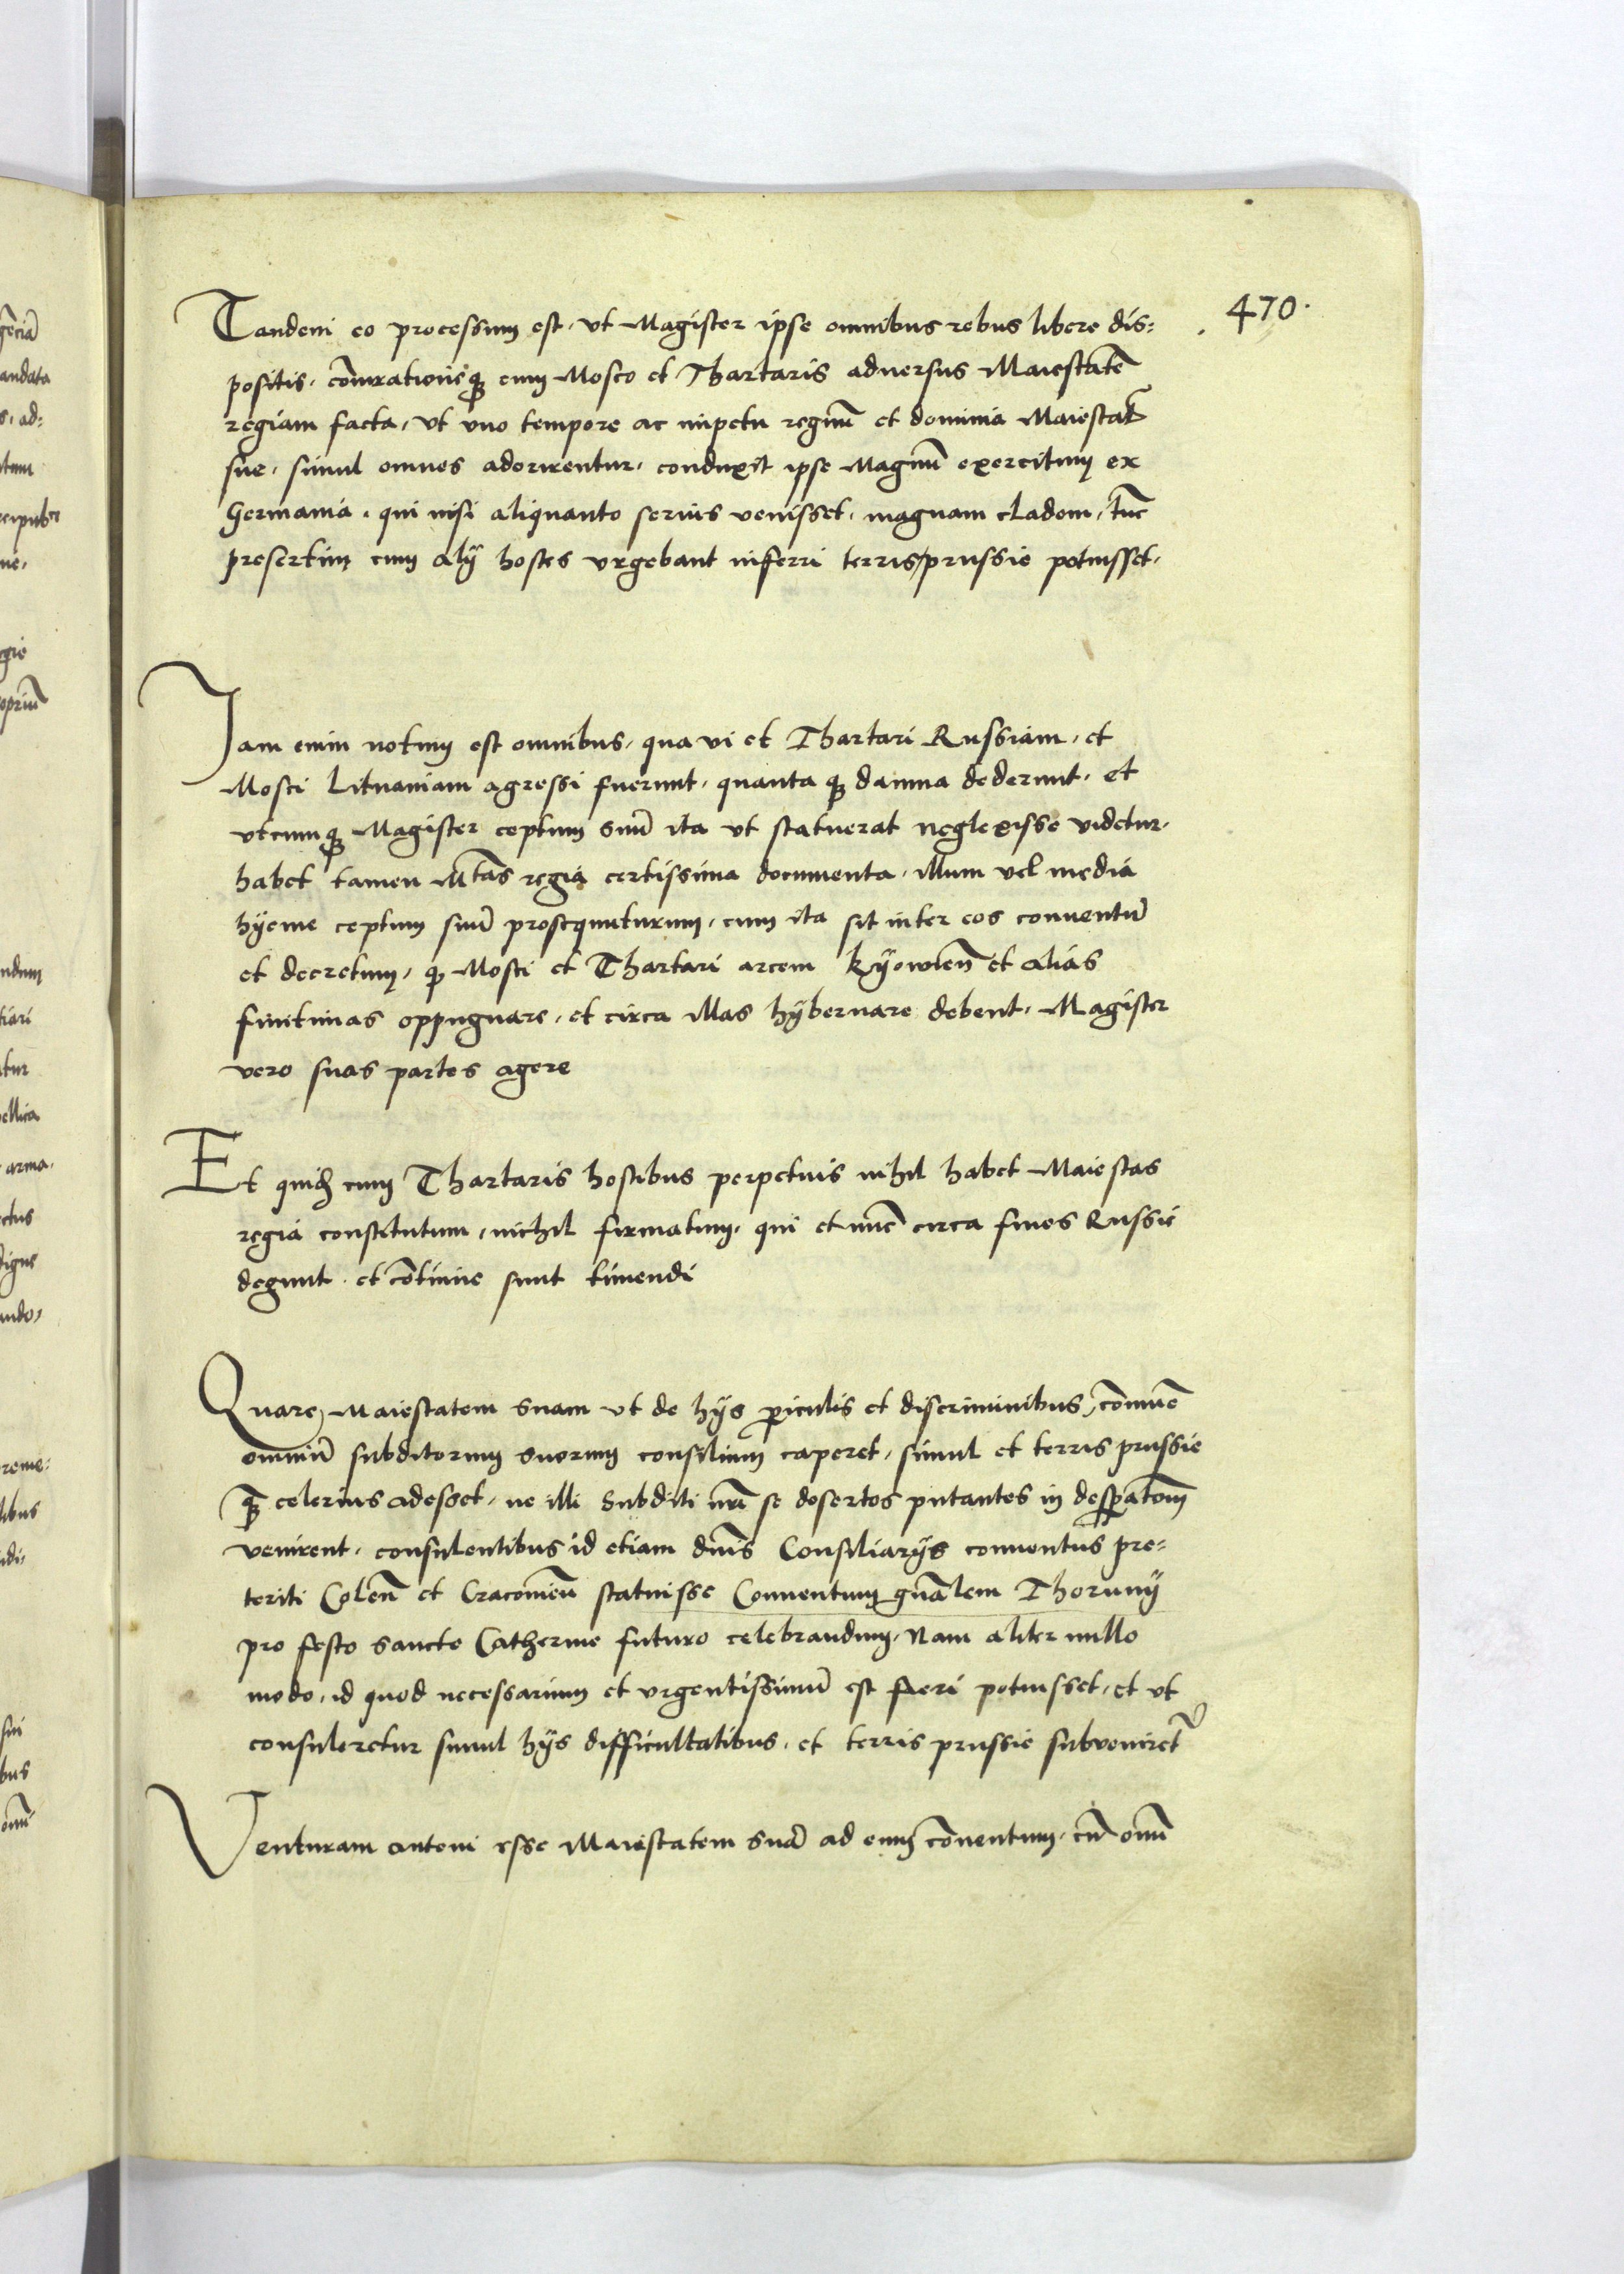 470.
Tandem eo processum est, ut Magister ipse omnibus rebus libere dis:
positis, cōiurationeq̃ꝫ cum Mosco et Thartaris adversus Maiestatē
regiam facta, ut uno tempore ac impetu regnū et dominia Maiestat̃
sue, simul omnes adorirentur, conduxit ipse Magnū exercitum ex
Germania, qui nisi aliquanto serius venisset, magnam cladem, tūc
presertim cum alÿ hostes urgebant inferri terris prussie potuisset.
Iam enim notum est omnibus, qua vi et Thartari Russiam, et
Mosci Lituaniam agressi fuerunt, quanta qꝫ damna dederunt, et
utcumqꝫ Magister ceptum suū ita ut statuerat neglexisse videtur,
habet tamen Mtas regia certissima documenta, illum vel media
hÿeme ceptum suū prosequuturum, cum ita sit inter eos conventū
et decretum, ꝙ Mosci et Thartari arcem Kÿowien̄ et alias
finitimas oppugnare, et circa illas hÿbernare debent, Magister
vero suas partes agere
Et quidē cum Thartaris hostibus perpetuis nihil habet Maiestas
regia constitutum, nichil firmatum, qui et nūc circa fines Russie
degunt, et cōtinue sunt timendi
Quare, Maiestatem suam ut de hÿs ꝑiculis et discriminibus, cōmune
omniū subditorum suorum consilium caperet, simul et terris prussie
q̄ꝫ celerius adesset, ne illi subditi nr̄i se desertos putantes in desꝑatōem
venirent, consulentibus id etiam dn̄is Consiliarÿs conventus pre:
teriti Colen̄ et Cracovien̄ statuisse Conventum gn̄alem Thorunÿ
pro festo sancte Catherine futuro celebrandum, Nam aliter nullo
modo, id quod necessarium et urgentissimū est fieri potuisset, et ut
consuleretur simul hÿs difficultatibus, et terris prussie subveniret᷑
Venturam autem esse Maiestatem suā ad eum cōventum, cū om̄i